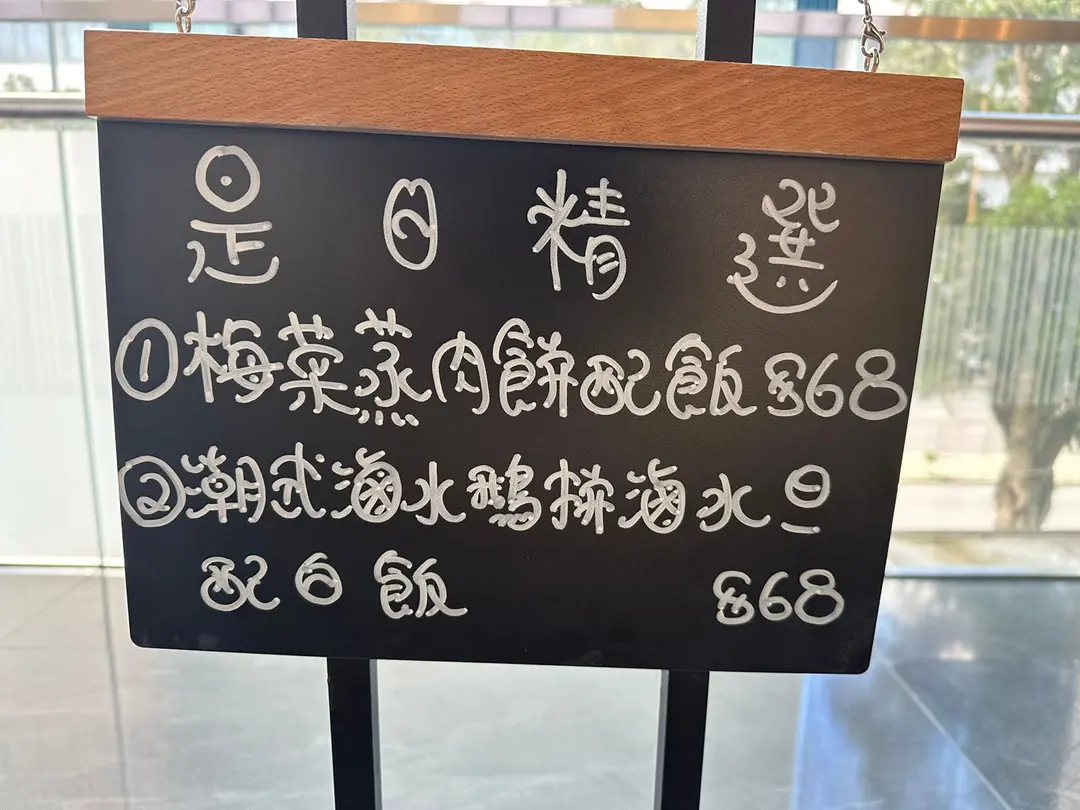 是日精選
①梅菜蒸肉餅配飯$68
②潮式滷水鵝拼滷水旦
配白飯 $68